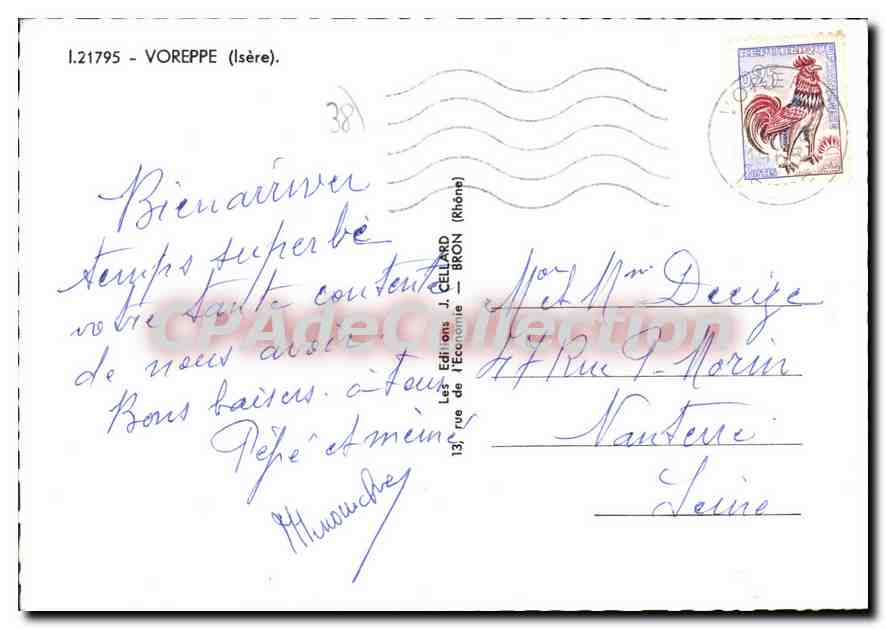 I.21795 - VOREPPE (Isère).
38)
Bien arriver
temps superbe
votre tante contente
de nous avoir.
Bons baisers. à tous
Pépé et mémé
13, rue de l'Economie — BRON (Rhône)
Les Editions J. CELLARD
Mor et Mm Decize
47 Rue P. Morin
Nanterre
Seine
CPAdeCollection
0,25
POSTES